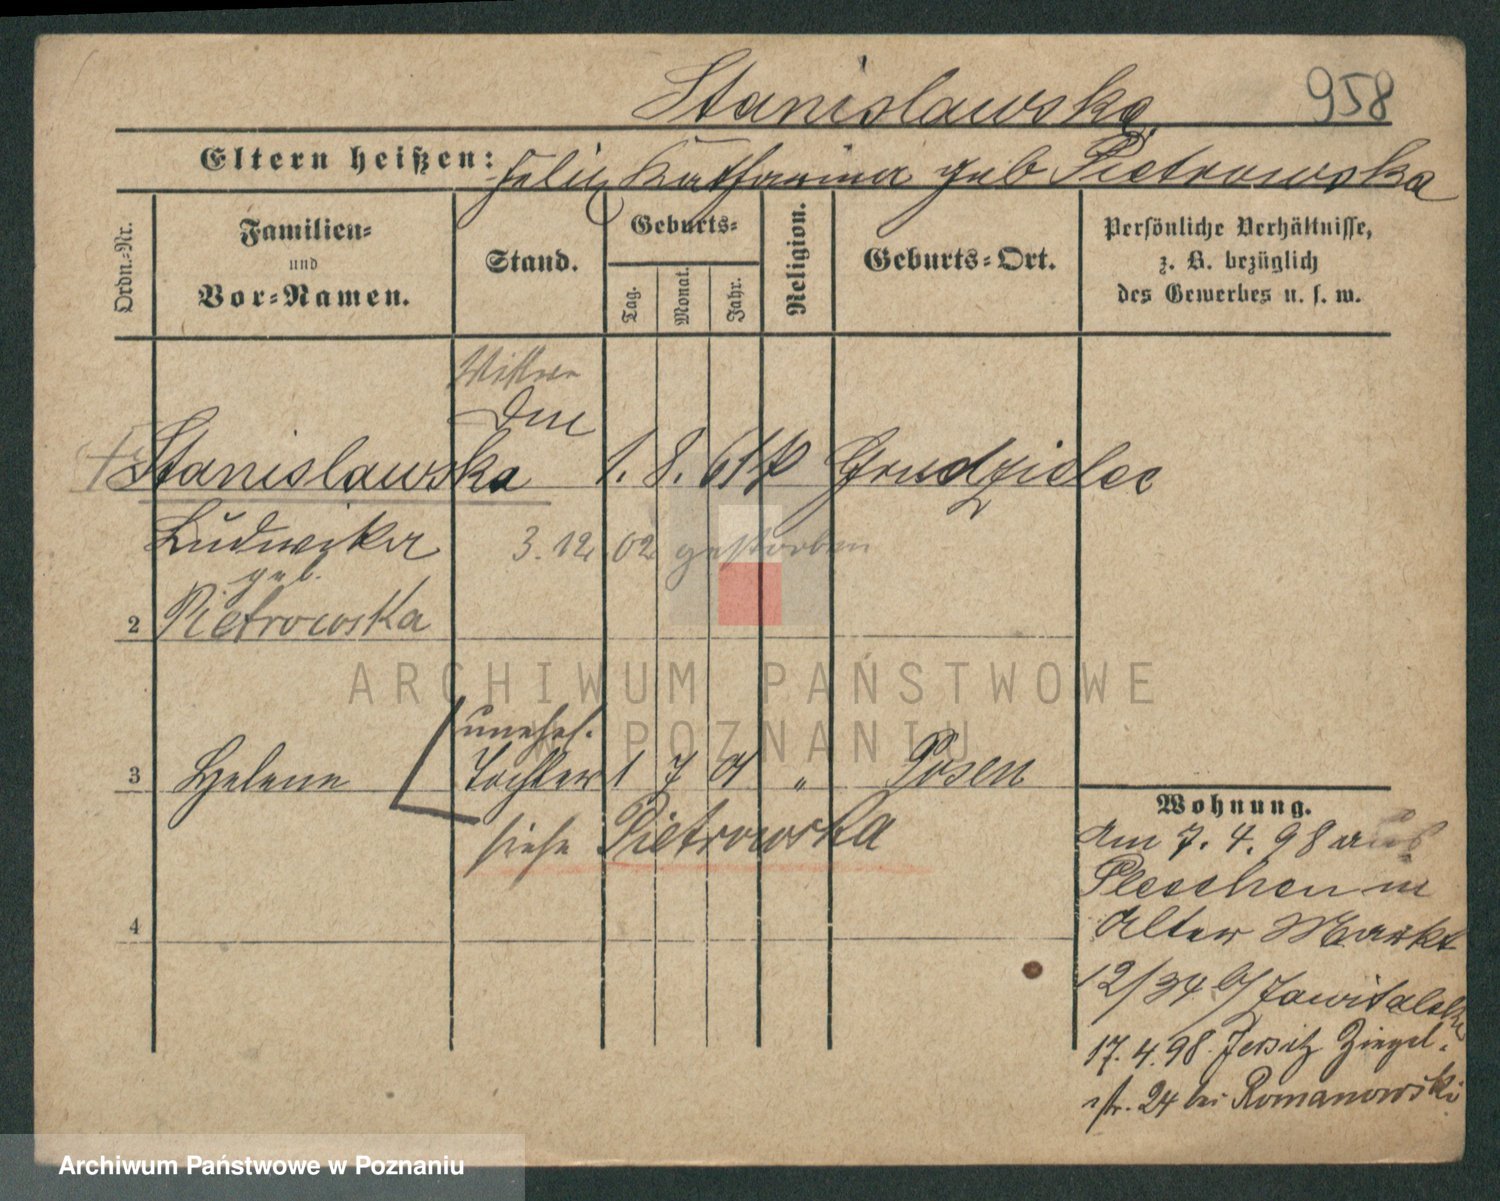 Stanislawska
958
Eltern heißen: Felix Katharina geb Pietrowska
Ordn.-Nr.
Familien-
und
Vor-Namen.
Stand.
Geburts-
Tag.
Monat.
Jahr.
Religion.
Geburts-Ort.
Persönliche Verhältnisse,
z. B. bezüglich
des Gewerbes u. s. w.
Stanislawska 1. 8. 61 Grudzielec
Ludwika 3. 12. 02 gestorben
geb.
2 Pietrowska
ARCHIWUM PAŃSTWOWE
W POZNANIU
unehel.
3 Helene Tochter 1 7 01 " Posen
siehe Pietrowska
4
Wohnung.
Am 7. 4. 98 aus
Pleschen in
Alter Markt
12/34 b/ Zawitalska
17. 4. 98. Jersitz Ziegel-
str. 24 bei Romanowski
Archiwum Państwowe w Poznaniu